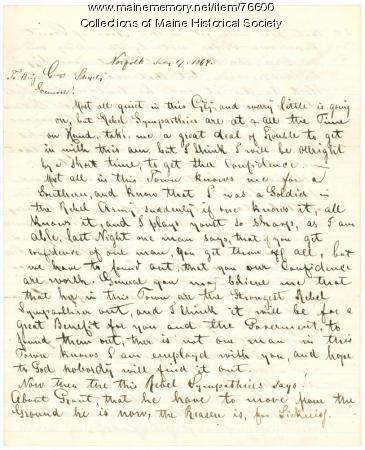 www.mainememory.net/item/76600
Collections of Maine Historical Society
Norfolk 1864.
To Brig. Gen
General!
Not all quiet in this City, and worry little is going
on, but Rebel Sympathies are at all the Time
on Hand, take me a great deal of trouble to get
in with this but I think I will be allright
by a short time, to get ther Confidence. —
Most all in this Town knows me for a
Southern, and know that I was a Soldier in
the Rebel Army, suddenly if one knows it, all
knows it, and I plays so sharp, as I am
able, last Night one man says, that if you get
confidence of one man, you get them of all, but
we have to found out, that you our Confidence
are worth. General you may believe me that
that her in this Town are the Strongest Rebel
Sympathies out, and I think it will be for a
great Benefit for you and the Goverment, to
found them out, ther is not one man in this
Town knows I am employd with you, and hope
to God nobordy will find it out.
Now then the this Rebel Sympathies says!
About Grant, that he have to move from the
Ground he is now, the Reason is, for Sickness.